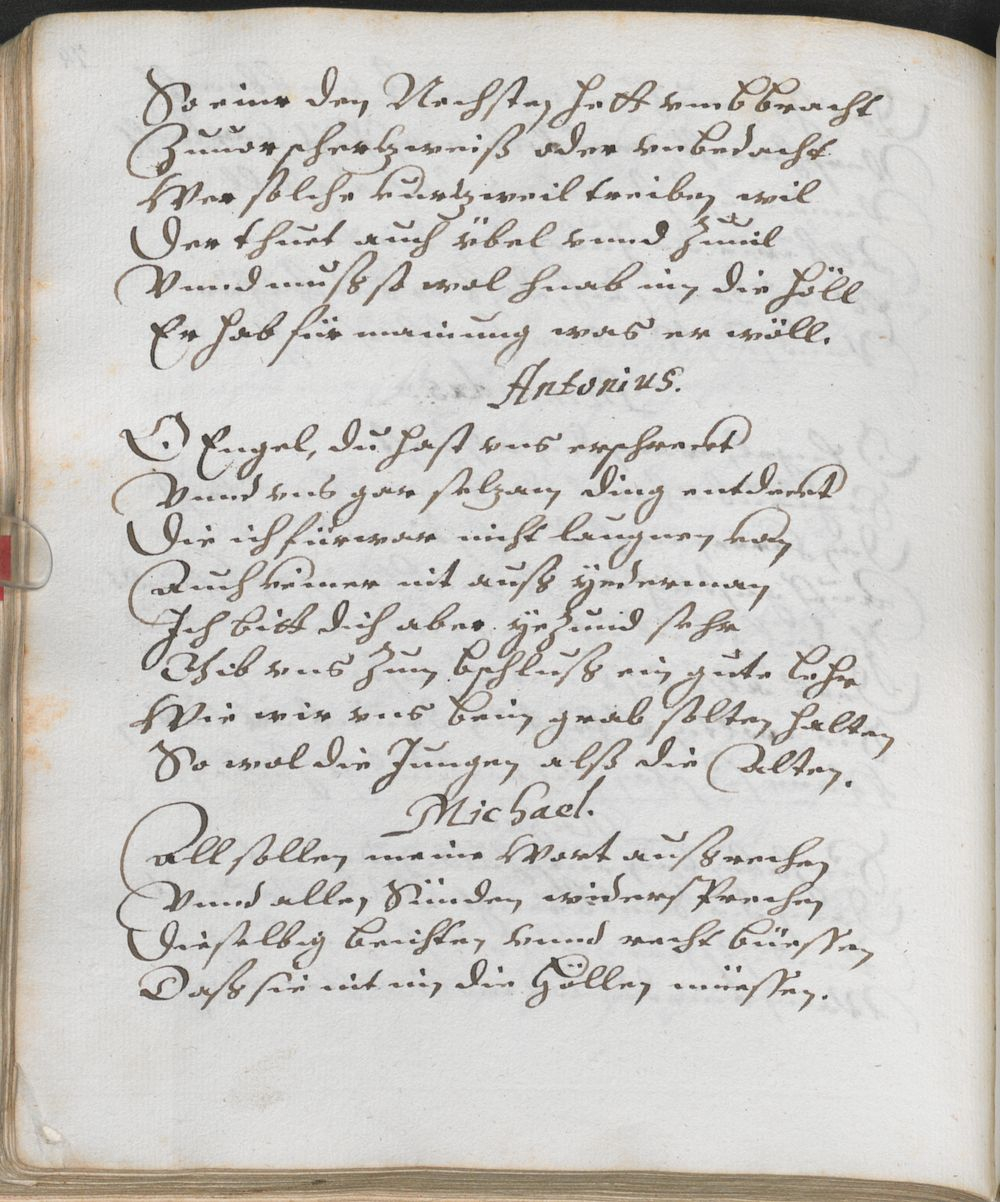 So einr den Nechsten hett vmbbracht
Zuuor schertzweiß oder vnbedacht
Wer solche kurtzweil treiben wil
Der thuet auch übel vnnd zuuil
Vnnd muß so wol hnab inn die Höll
Er hab für mainung was er wöll.
Antonius.
O Engel, du hast vns erschreckt
Vnnd vns gar selzam ding entdeckt
Die ich fürwar nicht laugnen kan
Auch keiner nit auß yederman
Ich bitt dich aber yezund sehr
Gib vns zum bschluß ein gute Lehr
Wie wir vns beim grab solten halten
So wol die Jungen alß die Alten.
Michael.
All sollen meine Wort außrechen
Vnnd allen Sünden widersprechen
Dieselbig beichten vnnd recht büessen
Daß sie nit inn die Höllen müessen.